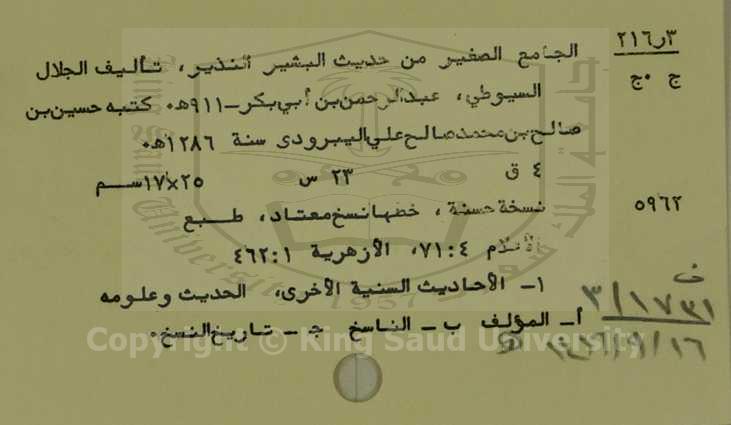 ٢١٦٫٣
ج ٠ج
الجامع الصغير من حديث البشير النذير، تأليف الجلال
السيوطي، عبدالرحمن بن أبي بكر -٩١١ه٠ كتبه حسين بن
صالح بن محمد صالح علي اليبرودى سنة ١٢٨٦ه٠
٤ ق ٢٣ س ٢٥×١٧ســم
٥٩٦٢
نسخة حسنة، خطها نسخ معتاد، طبع
الأعلام ٧١:٤، الأزهرية ٤٦٢:١
١- الأحاديث السنية الأخرى، الحديث وعلومه
أ- المؤلف ب- الناسخ ج- تاريخ النسخ٠
ف
٣/١٧٣١
Copyright © King Saud University
1957